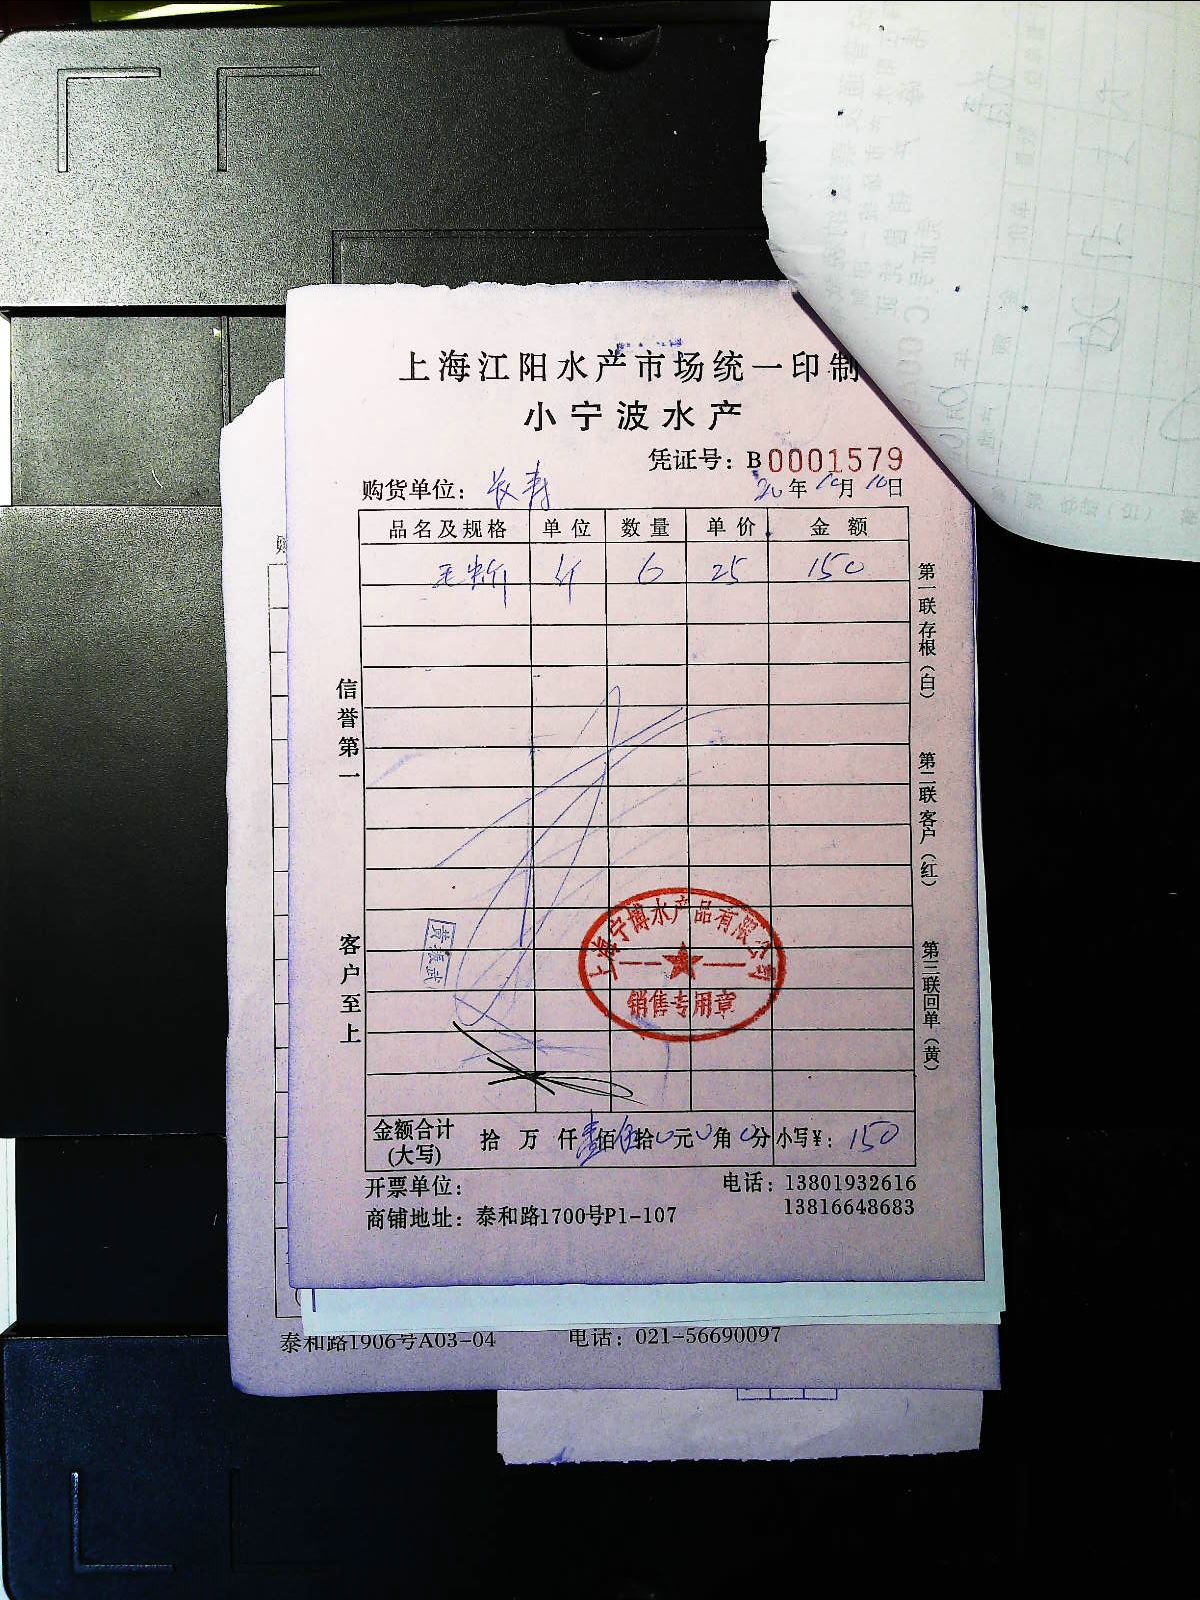 上海江阳水产市场统一印制
小宁波水产
凭证号：B0001579
购货单位：长寿
20年10月10日
品名及规格 单位 数量 单价 金额
斤 6 25 150
信誉第一
客户至上
第一联存根（白）
第二联客户（红）
第三联回单（黄）
黄振武
上海宁博水产品有限公司
销售专用章
金额合计（大写） 拾 万 仟壹佰伍拾0元0角0分 小写¥：150
开票单位：
电话：13801932616
13816648683
商铺地址：泰和路1700号P1-107
泰和路1906号A03-04 电话：021-56690097